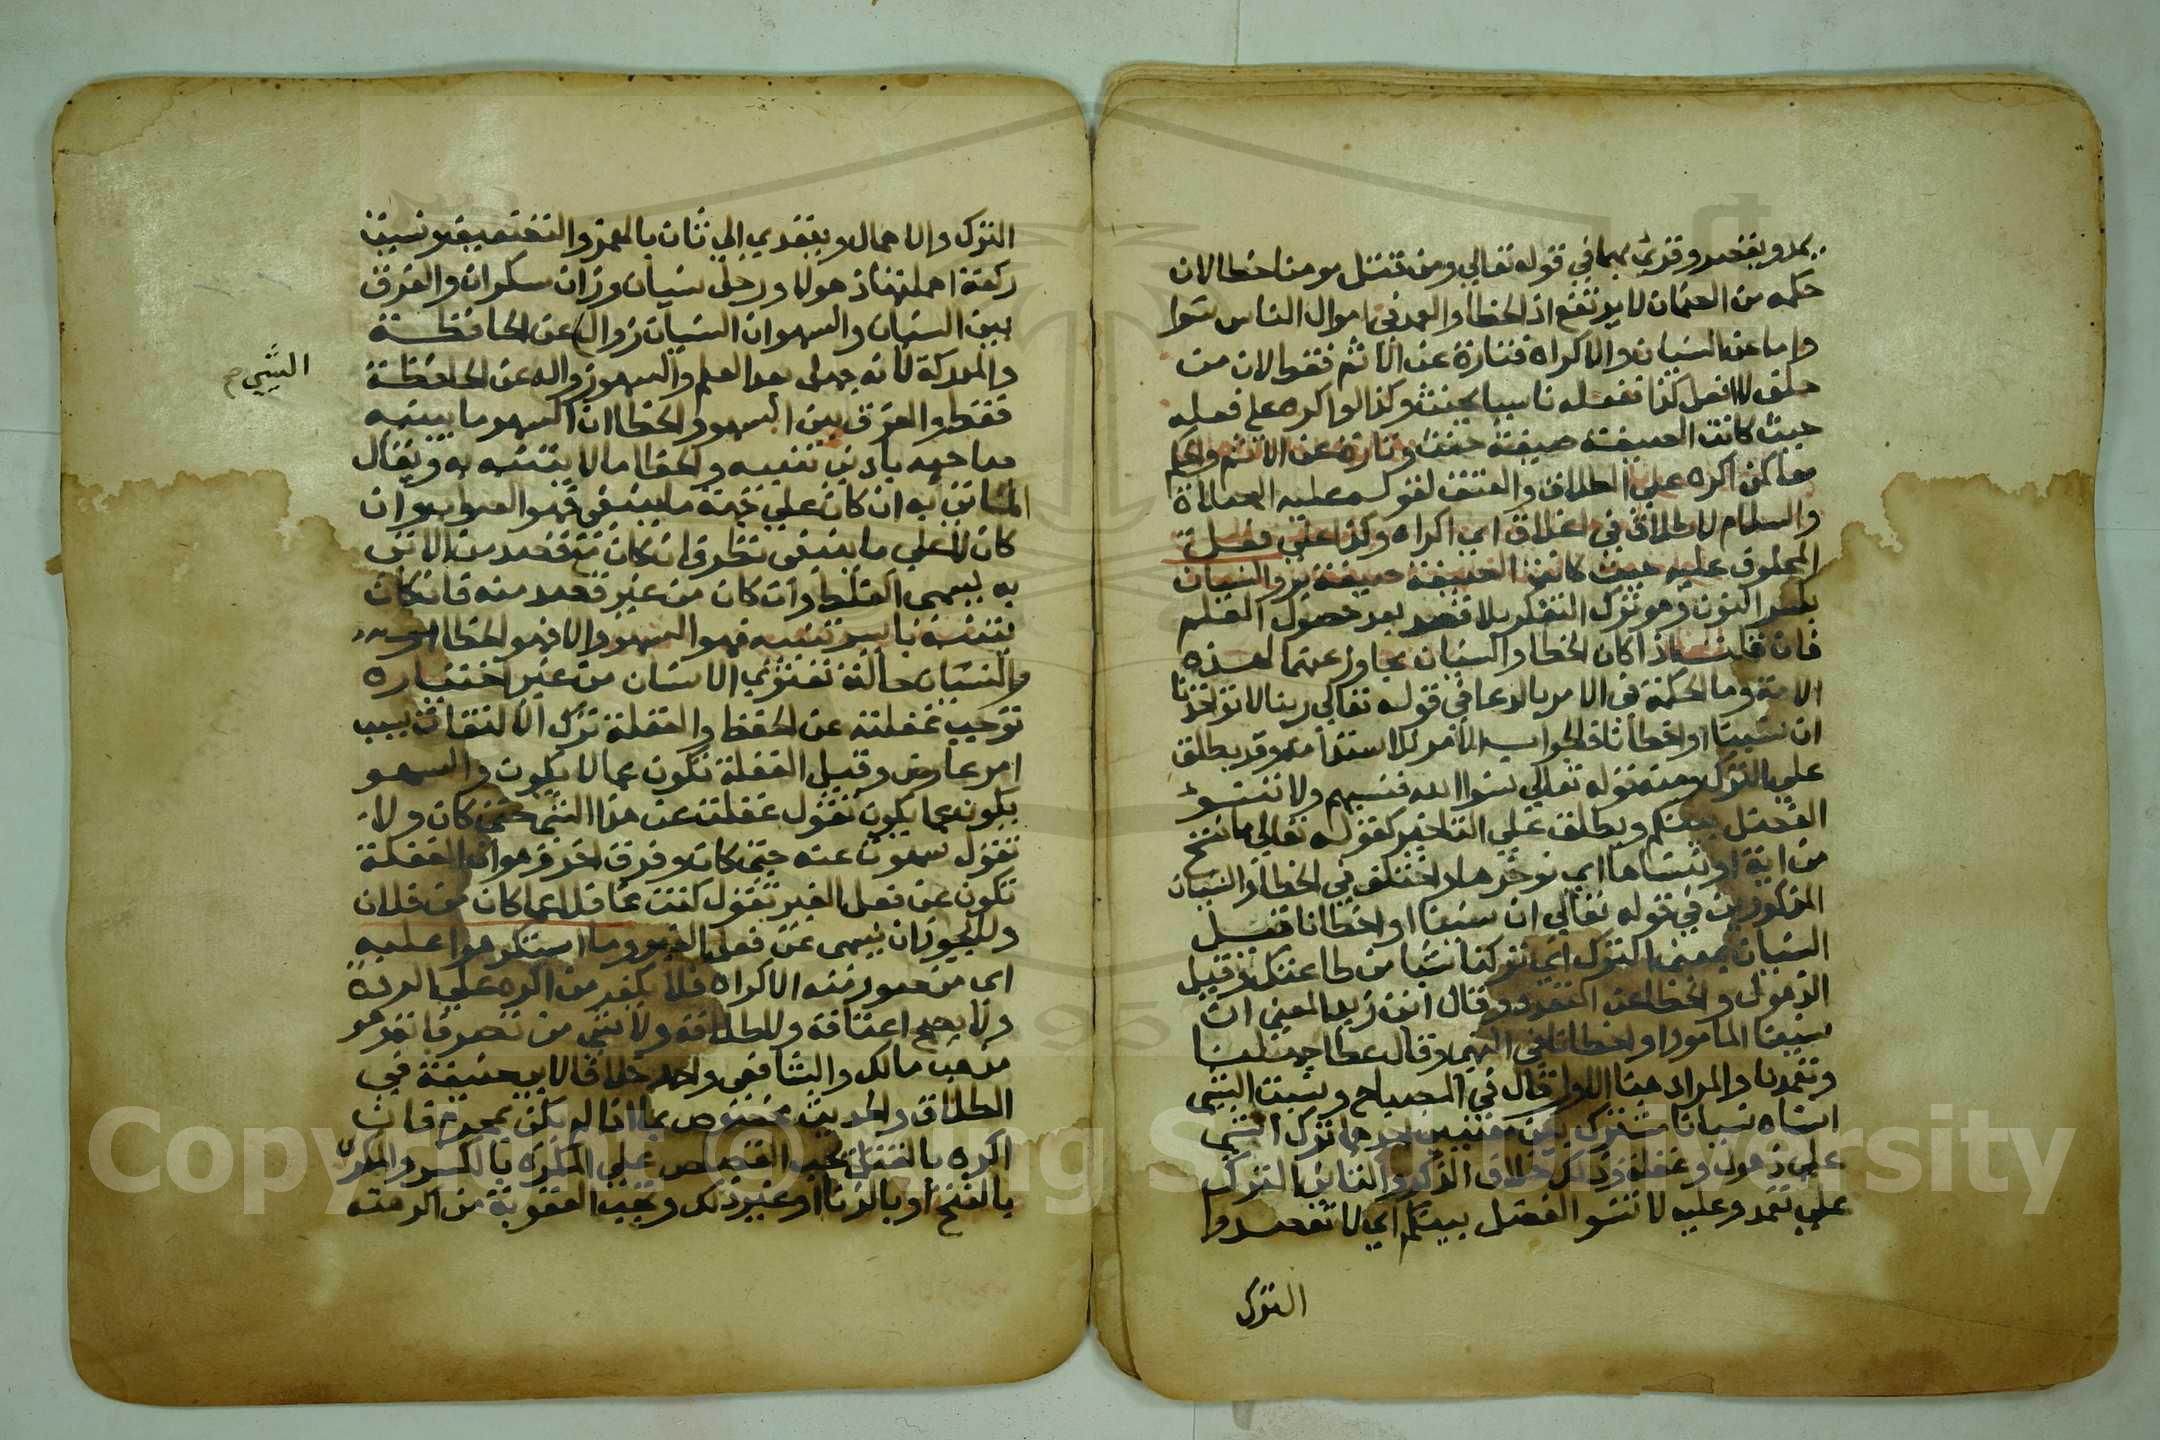 يمد ويقصر وقرئ بهما في قوله تعالى ومن قتل مومنا خطا لان
حكمه من الضمان لا يرتفع اذ الخطا والعمد في اموال الناس سوا
واما عن النسيان والاكراه فتارة عن الاثم فقط لان من
حلف لا افعل كذا ففعله ناسيا يحنث وكذا لو اكره على فعله
حيث كانت الصيغة صيغة حنث وتارة عن الاثم والحكم
معا كمن اكره على الطلاق والعتق لقوله عليه الصلاة
والسلام لا طلاق في اغلاق اي اكراه وكذا على فعل
المحلوف عليه حيث كانت الصيغة صيغة بر والنسيان
بكسر النون وهو ترك التفكر بلا قصد بعد حصول العلم
فان قلت اذا كان الخطا والنسيان تجاوز عنهما لهذه
الامة وما الحكمة في الامر بالدعا في قوله تعالى ربنا لا تؤاخذنا
ان نسينا او اخطانا فالجواب الامر بالاستدامة وقد يطلق
على الترك ومنه قوله تعالى نسوا الله فنسيهم ولا تنسوا
الفضل بينكم ويطلق على التاخير كقوله تعالى ما ننسخ
من اية او ننساها اي نوخرها واختلف في الخطا والنسيان
المذكورين في قوله تعالى ان نسينا او اخطانا فقيل
النسيان بمعنى الترك اي تركنا شيا من طاعتك وقيل
الذهول والخطا عن القصد وقال ابن زيد المعنى ان
نسينا المامور او اخطانا في النهي وقال عطا جهلنا
وتعمدنا والمراد هنا الاول قال في المصباح ونسيت الشي
انساه نسيانا مشترك بين معنيين احدهما ترك الشي
على ذهول وغفلة وذلك خلاف الذكر والثاني الترك
على تعمد وعليه لا تنسوا الفضل بينكم اي لا تقصدوا
الترك
الترك والاهمال ويتعدي الى ثان بالهمز والتضعيف ونسيت
ركعة اهملتها ذهولا ورجل نسيان وزان سكران والفرق
بين النسيان والسهو ان النسيان زوال عن الحافظة
الشي ح
والمدركة لانه جهل بعد العلم والسهو زواله عن الحافظة
فقط والفرق بين السهو والخطا ان السهو ما ينتبه
صاحبه بادنى تنبيه والخطا ما لا يتنبه به ويقال
الماتي به ان كان على جهة ما ينبغي فهو الصواب وان
كان لا على ما ينبغي نظر فان كان مع قصد من الاتي
به يسمى الغلط وان كان من غير قصد منه فان كان
يتنبه بايسر تنبيه فهو السهو والا فهو الخطا
والنسيان حالة تعتري الانسان من غير اختياره
توجب غفلته عن الحفظ والغفلة ترك الالتفات بسبب
امر عارض وقيل الغفلة تكون عما لا يكون والسهو
يكون عما يكون تقول غفلت عن هذا الشي حتى كان ولا
تقول سهوت عنه حتى كان وفرق اخر وهو ان الغفلة
تكون عن فعل الغير تقول كنت غافلا عما كان من فلان
ولا يجوز ان يسهى عن فعل الغير وما استكرهوا عليه
اي من صدر منه الاكراه فلا يكفر من اكره على الردة
ولا يصح اعتاقه ولا طلاقه ولا شي من تصرفاته هو
مذهب مالك والشافعي واحمد خلافا لابي حنيفة في
الطلاق والحديث مخصوص بما اذا لم يكن بمحرم فان
اكره بالقتل يجب القصاص على المكره بالكسر والمكره
بالفتح او بالزنا او غير ذلك وتجب العقوبة من الزمته